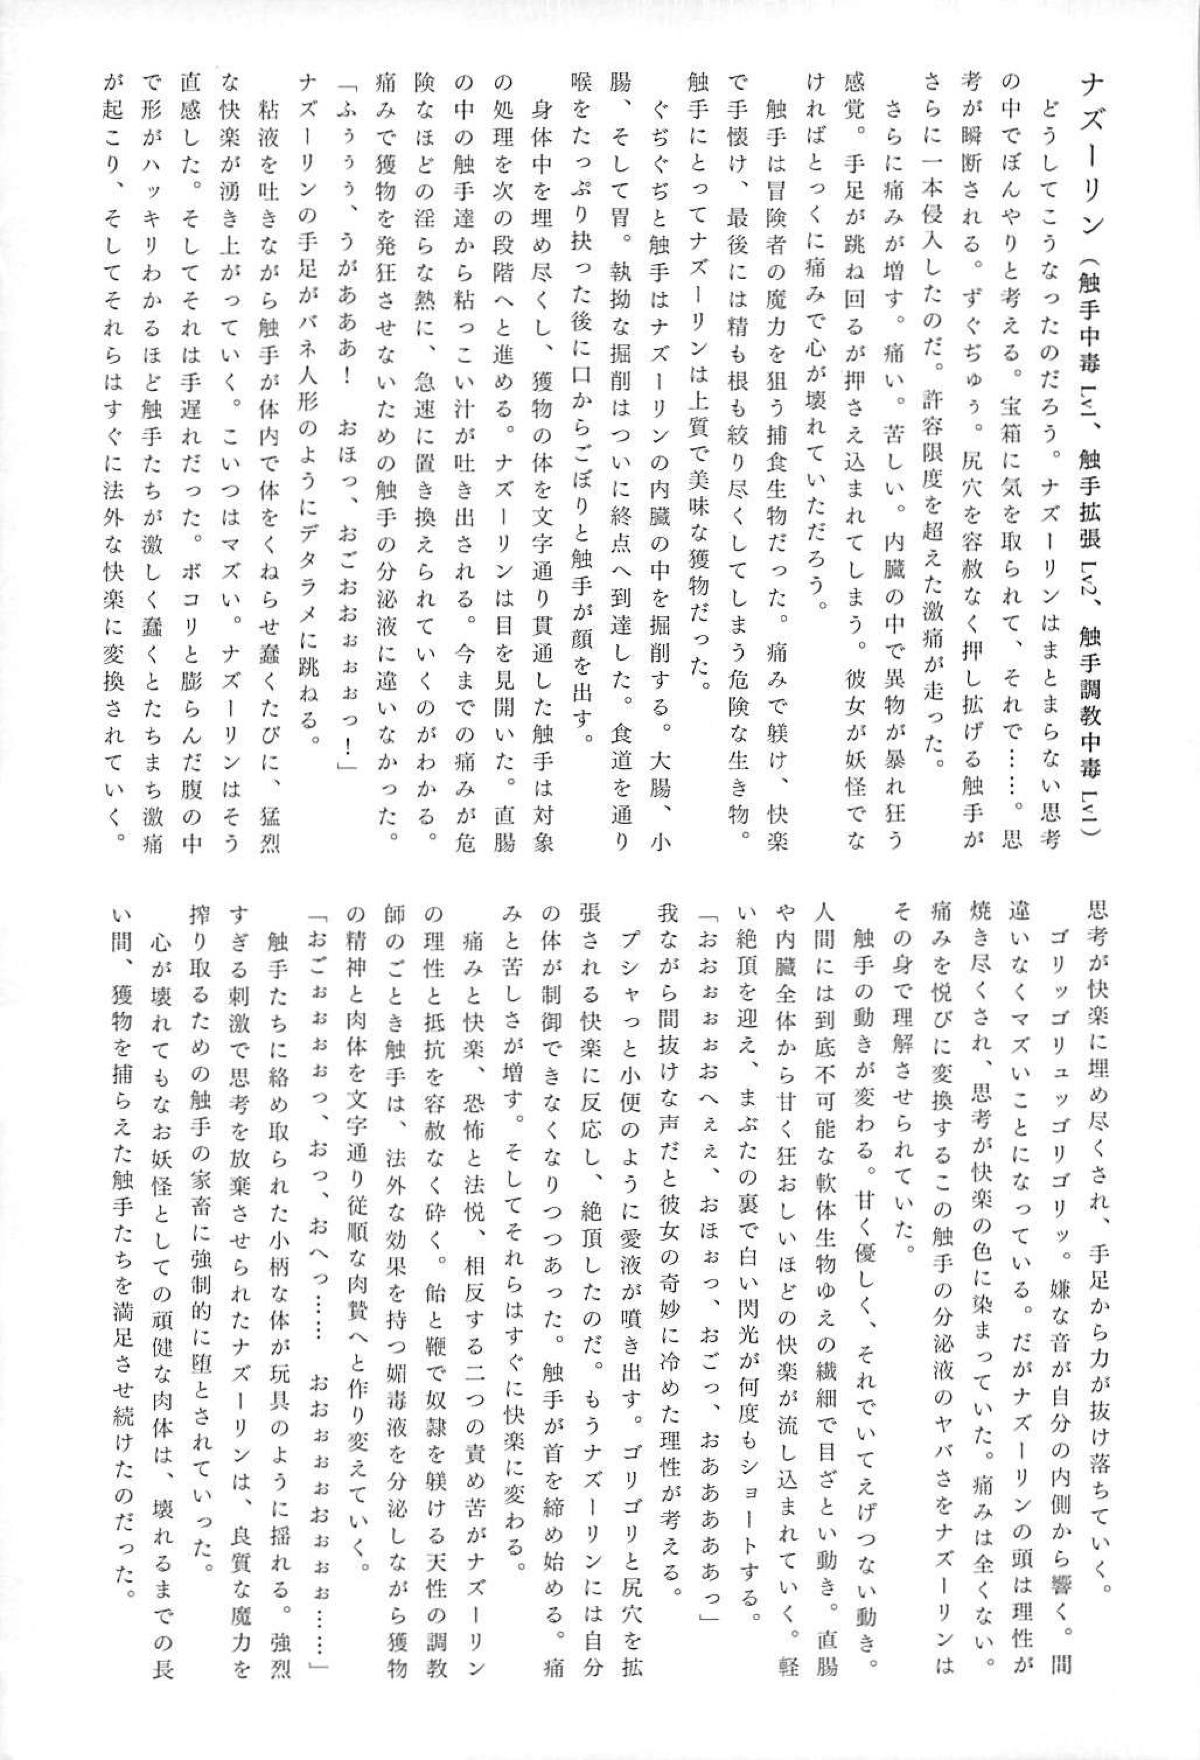 ナズーリン（触手中毒 Lv1、触手拡張 Lv2、触手調教中毒 Lv1）
どうしてこうなったのだろう。ナズーリンはまとまらない思考
の中でぼんやりと考える。宝箱に気を取られて、それで……。思
考が瞬断される。ずぐぢゅぅ。尻穴を容赦なく押し拡げる触手が
さらに一本侵入したのだ。許容限度を超えた激痛が走った。
さらに痛みが増す。痛い。苦しい。内臓の中で異物が暴れ狂う
感覚。手足が跳ね回るが押さえ込まれてしまう。彼女が妖怪でな
ければとっくに痛みで心が壊れていただろう。
触手は冒険者の魔力を狙う捕食生物だった。痛みで躾け、快楽
で手懐け、最後には精も根も絞り尽くしてしまう危険な生き物。
触手にとってナズーリンは上質で美味な獲物だった。
ぐぢぐぢと触手はナズーリンの内臓の中を掘削する。大腸、小
腸、そして胃。執拗な掘削はついに終点へ到達した。食道を通り
喉をたっぷり抉った後に口からごぼりと触手が顔を出す。
身体中を埋め尽くし、獲物の体を文字通り貫通した触手は対象
の処理を次の段階へと進める。ナズーリンは目を見開いた。直腸
の中の触手達から粘っこい汁が吐き出される。今までの痛みが危
険なほどの淫らな熱に、急速に置き換えられていくのがわかる。
痛みで獲物を発狂させないための触手の分泌液に違いなかった。
「ふぅぅぅ、うがあああ！　おほっ、おごおおぉぉぉっ！」
ナズーリンの手足がバネ人形のようにデタラメに跳ねる。
粘液を吐きながら触手が体内で体をくねらせ蠢くたびに、猛烈
な快楽が湧き上がっていく。こいつはマズい。ナズーリンはそう
直感した。そしてそれは手遅れだった。ボコリと膨らんだ腹の中
で形がハッキリわかるほど触手たちが激しく蠢くとたちまち激痛
が起こり、そしてそれらはすぐに法外な快楽に変換されていく。
思考が快楽に埋め尽くされ、手足から力が抜け落ちていく。
ゴリッゴリュッゴリゴリッ。嫌な音が自分の内側から響く。間
違いなくマズいことになっている。だがナズーリンの頭は理性が
焼き尽くされ、思考が快楽の色に染まっていた。痛みは全くない。
痛みを悦びに変換するこの触手の分泌液のヤバさをナズーリンは
その身で理解させられていた。
触手の動きが変わる。甘く優しく、それでいてえげつない動き。
人間には到底不可能な軟体生物ゆえの繊細で目ざとい動き。直腸
や内臓全体から甘く狂おしいほどの快楽が流し込まれていく。軽
い絶頂を迎え、まぶたの裏で白い閃光が何度もショートする。
「おおぉぉぉおへぇぇ、おほぉっ、おごっ、おああああぁっ」
我ながら間抜けな声だと彼女の奇妙に冷めた理性が考える。
プシャっと小便のように愛液が噴き出す。ゴリゴリと尻穴を拡
張される快楽に反応し、絶頂したのだ。もうナズーリンには自分
の体が制御できなくなりつつあった。触手が首を締め始める。痛
みと苦しさが増す。そしてそれらはすぐに快楽に変わる。
痛みと快楽、恐怖と法悦、相反する二つの責め苦がナズーリン
の理性と抵抗を容赦なく砕く。飴と鞭で奴隷を躾ける天性の調教
師のごとき触手は、法外な効果を持つ媚毒液を分泌しながら獲物
の精神と肉体を文字通り従順な肉贄へと作り変えていく。
「おごぉぉぉぉっ、おっ、おへっ……　おおぉぉぉおぉぉぉ……」
触手たちに絡め取られた小柄な体が玩具のように揺れる。強烈
すぎる刺激で思考を放棄させられたナズーリンは、良質な魔力を
搾り取るための触手の家畜に強制的に堕とされていった。
心が壊れてもなお妖怪としての頑健な肉体は、壊れるまでの長
い間、獲物を捕らえた触手たちを満足させ続けたのだった。